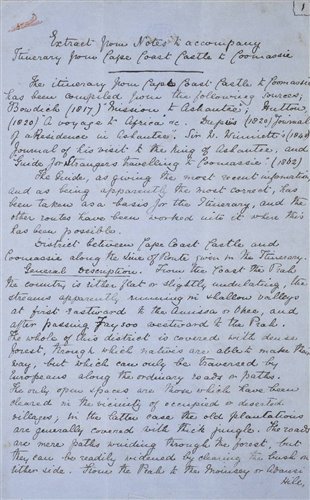 1
Extract from Notes to accompany
Itinerary from Cape Coast Castle to Coomassie
The itinerary from Cape Coast Castle to Coomassie
has been compiled from the following sources;
Bowdich (1817) "Mission to Ashantee", Hutton
(1820) "A voyage to Africa" &c. Dupuis (1820) "Journal
of a Residence in Ashantee". Sir W. Winniett's (1848)
Journal of his visit to the King of Ashantee, and
"Guide for Strangers travelling to Coomassie" (1862)
The Guide, as giving the most recent information
and as being apparently the most correct, has
been taken as a basis for the Itinerary, and the
other routes have been worked into it when this
has been possible.
District between Cape Coast Castle and
Coomassie along the line of Route given in the Itinerary.
General Description. From the Coast the Prah
the country is either flat or slightly undulating, the
streams apparently running in shallow valleys
at first eastward to the Amissa or Okee, and
after passing Faysoo westward to the Prah.
The whole of this district is covered with dense
forest, through which natives are able to make their
way, but which can only be traversed by
Europeans along the ordinary roads or paths.
The only open spaces are those which have been
cleared in the vicinity of occupied or deserted
villages; in the latter case the old plantations
are generally covered with thick jungle. The roads
are mere paths winding through the forest, but
they can be readily widened by clearing the bush on
either side. From the Prah to the Moinsey or Adansi
Hills,